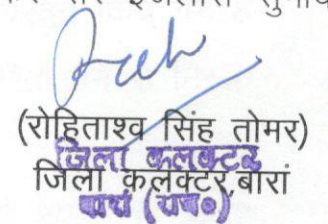 इजलास
(रोहिताश्व सिंह तोमर)
जिला कलक्टर
जिला कलक्टर, बारां
बारां (राज०)